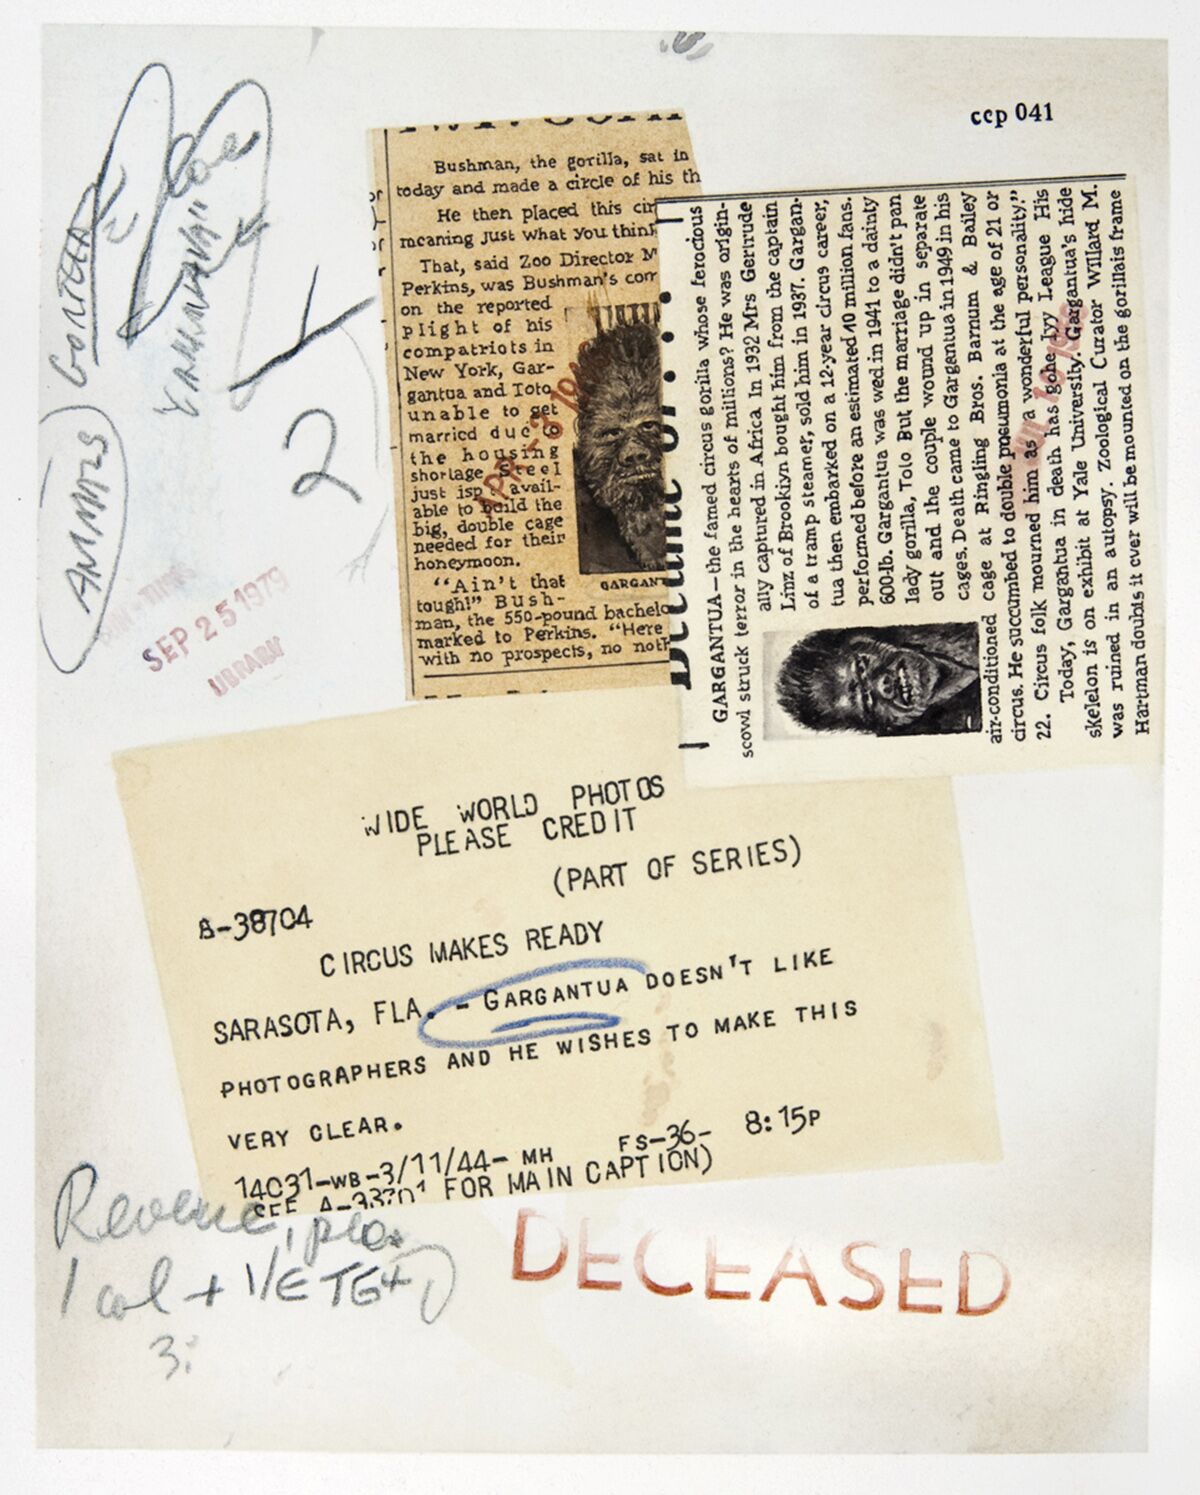 ccp 041
GORILLA
ANIMALS
2
SEP 25 1979
LIBRARY
Bushman, the gorilla, sat in
today and made a circle of his th
He then placed this cir
meaning just what you think
That, said Zoo Director M
Perkins, was Bushman's com
on the reported
plight of his
compatriots in
New York, Gar-
gantua and Toto
unable to get
married due to
the housing
shortage. Steel
just isn't avail-
able to build the
big, double cage
needed for their
honeymoon.
"Ain't that
tough!" Bush-
man, the 550-pound bachelo
marked to Perkins. "Here
with no prospects, no noth
GARGANT
APR - 3 19
Became of . . .
GARGANTUA — the famed circus gorilla whose ferocious
scowl struck terror in the hearts of millions? He was origin-
ally captured in Africa. In 1932 Mrs Gertrude
Linz of Brooklyn bought him from the captain
of a tramp steamer, sold him in 1937. Gargan-
tua then embarked on a 12-year circus career,
performed before an estimated 40 million fans.
600-lb. Gargantua was wed in 1941 to a dainty
lady gorilla, Toto. But the marriage didn't pan
out and the couple wound up in separate
cages. Death came to Gargantua in 1949 in his
air-conditioned cage at Ringling Bros. Barnum & Bailey
circus. He succumbed to double pneumonia at the age of 21 or
22. Circus folk mourned him as "a wonderful personality."
Today, Gargantua in death has gone Ivy League. His
skeleton is on exhibit at Yale University. Gargantua's hide
was ruined in an autopsy. Zoological Curator Willard M.
Hartman doubts it ever will be mounted on the gorilla's frame
WIDE WORLD PHOTOS
PLEASE CREDIT
(PART OF SERIES)
A-38704
CIRCUS MAKES READY
SARASOTA, FLA. - GARGANTUA DOESN'T LIKE
PHOTOGRAPHERS AND HE WISHES TO MAKE THIS
VERY CLEAR.
14031-WB-3/11/44- MH FS-36- 8:15P
SEE A-38701 FOR MAIN CAPTION)
1 col +
DECEASED